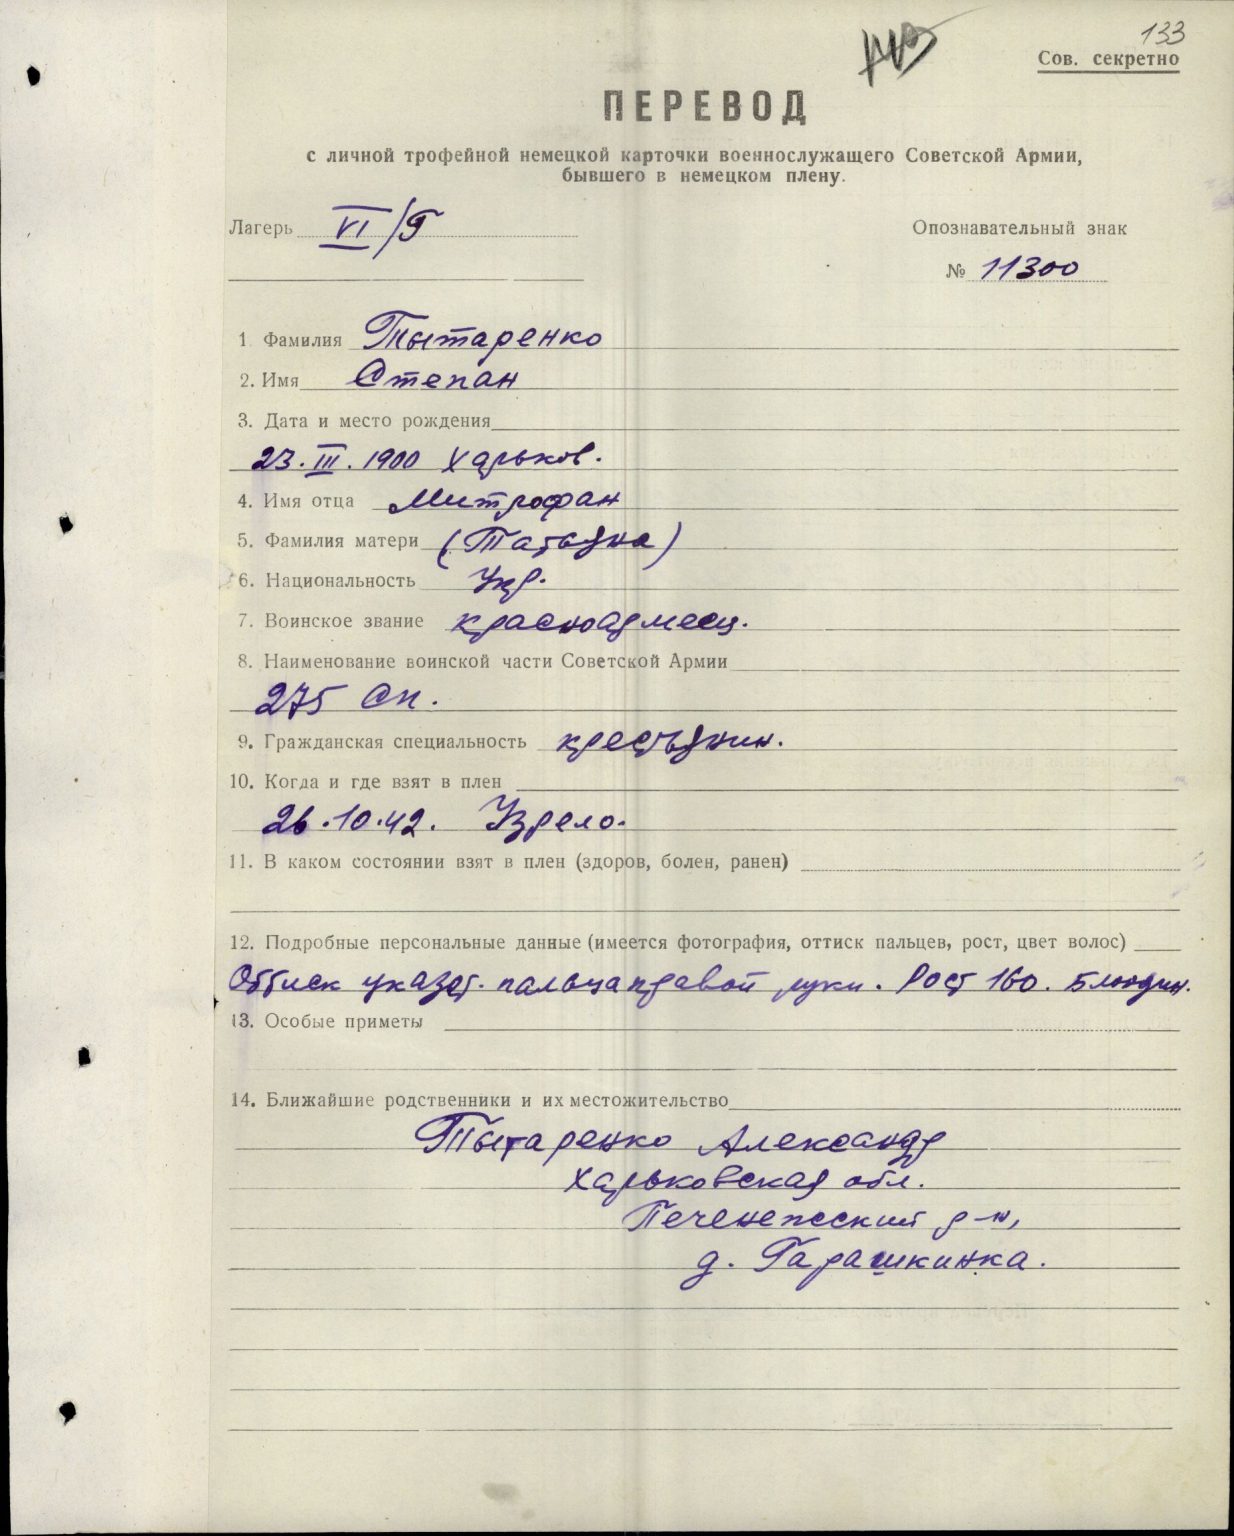 133
Сов. секретно
ПЕРЕВОД
с личной трофейной немецкой карточки военнослужащего Советской Армии,
бывшего в немецком плену.
Лагерь VI/Г
Опознавательный знак
№ 11300
1 Фамилия Тытаренко
2. Имя Степан
3. Дата и место рождения
23. III. 1900 Харьков.
4. Имя отца Митрофан
5. Фамилия матери (Татьяна)
6. Национальность Укр.
7. Воинское звание красноармеец.
8. Наименование воинской части Советской Армии
275 сп.
9. Гражданская специальность крестьянин.
10. Когда и где взят в плен
26.10.42. Узрело.
11. В каком состоянии взят в плен (здоров, болен, ранен)
12. Подробные персональные данные (имеется фотография, оттиск пальцев, рост, цвет волос)
Оттиск указат. пальца правой руки. Рост 160. Блондин.
13. Особые приметы
14. Ближайшие родственники и их местожительство
Тытаренко Александр
Харьковская обл.
Печенежский р-н,
д. Гарашкинка.